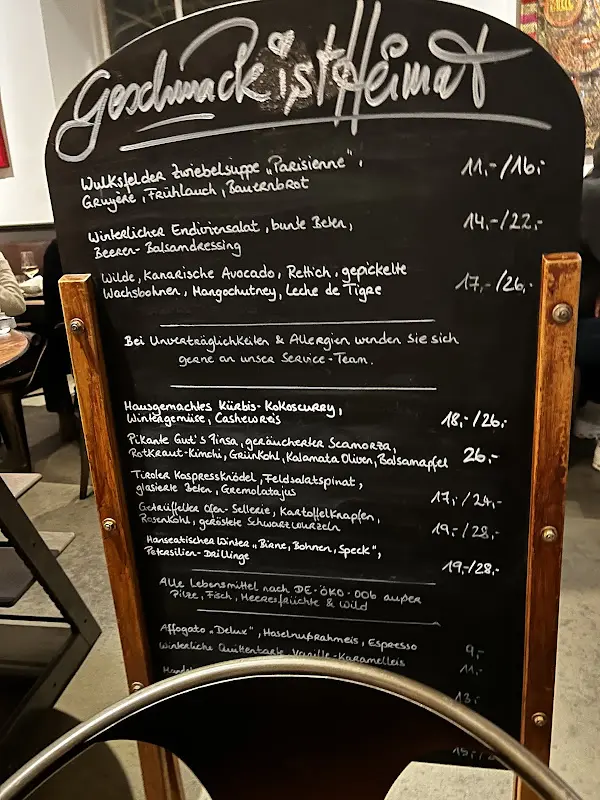 Geschmack ist Heimat
Wulksfelder Zwiebelsuppe „Parisienne“, 11,-/16,-
Gruyère, Frühlauch, Bauernbrot
Winterlicher Endiviensalat, bunte Beten, 14,-/22,-
Beeren-Balsamdressing
Wilde, Kanarische Avocado, Rettich, gepickelte 17,-/26,-
Wachsbohnen, Mangochutney, Leche de Tigre
Bei Unverträglichkeiten & Allergien wenden Sie sich
gerne an unser Service-Team.
Hausgemachtes Kürbis-Kokoscurry, 18,-/26,-
Wintergemüse, Cashewreis
Pikante Gut's Pinsa, geräucherter Scamorza,
Rotkraut-Kimchi, Grünkohl, Kalamata Oliven, Balsamapfel 26,-
Tiroler Kaspressknödel, Feldsalatspinat,
glasierte Beten, Gremolatajus 17,-/24,-
Getrüffelter Ofen-Sellerie, Kartoffelknapfen,
Rosenkohl, geröstete Schwarzwurzeln 19,-/28,-
Hanseatischer Winter „Birne, Bohnen, Speck“,
Petersilien-Drillinge 19,-/28,-
Alle Lebensmittel nach DE-ÖKO-006 außer
Pilze, Fisch, Meeresfrüchte & Wild
Affogato „Delux“, Haselnußrahmeis, Espresso 9,-
Winterliche Quittentarte, Vanille-Karamelleis 11,-
13,-